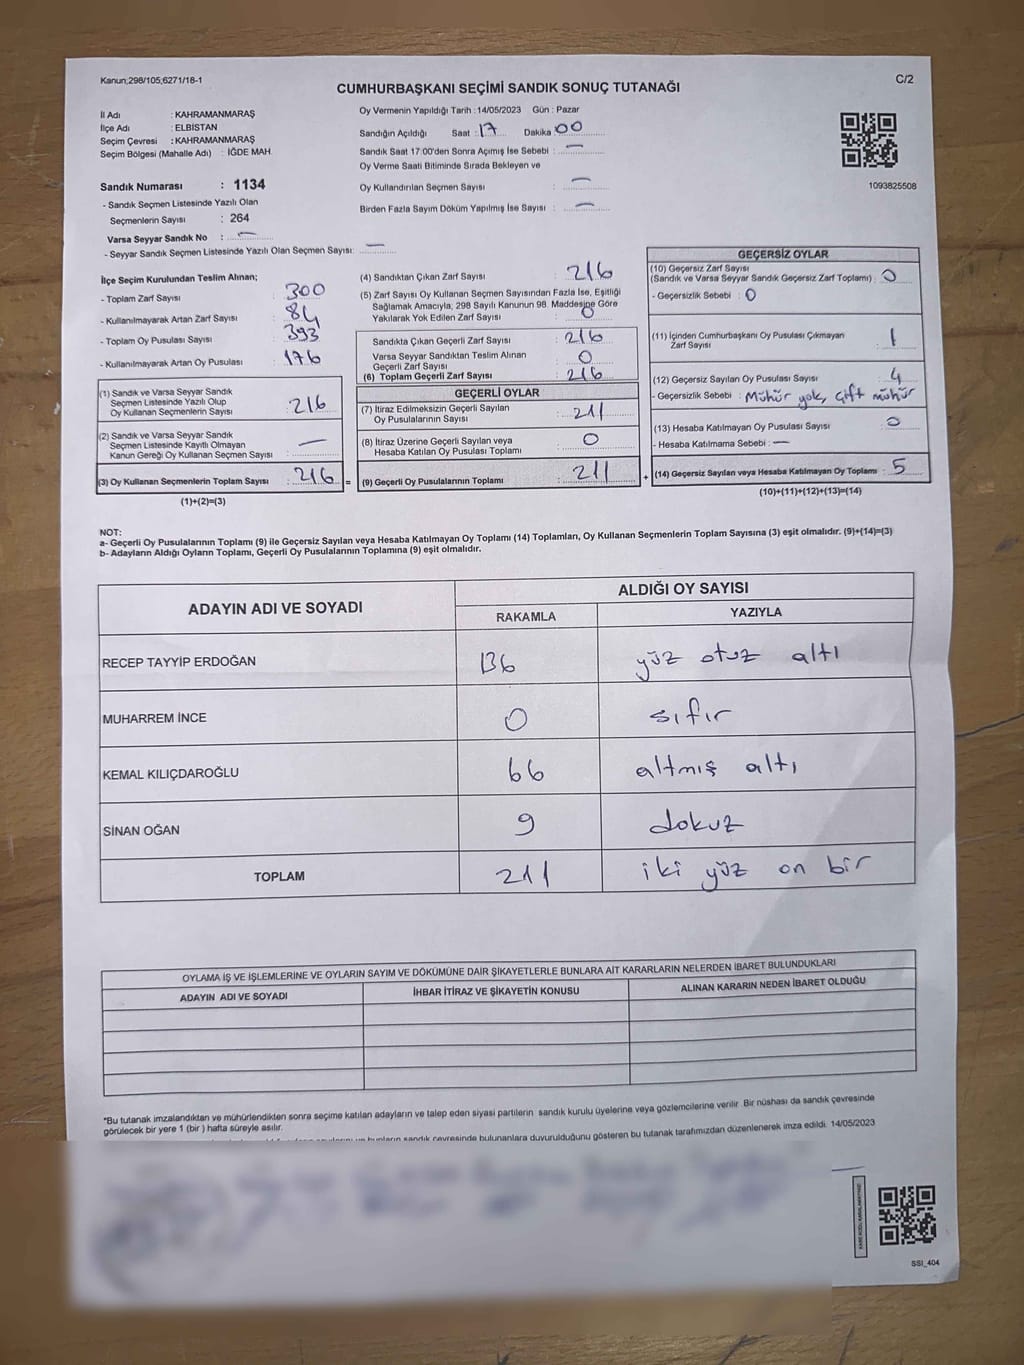 Kanun;298/105,6271/18-1
C/2
CUMHURBAŞKANI SEÇİMİ SANDIK SONUÇ TUTANAĞI
İl Adı : KAHRAMANMARAŞ
İlçe Adı : ELBİSTAN
Seçim Çevresi : KAHRAMANMARAŞ
Seçim Bölgesi (Mahalle Adı) : İĞDE MAH.
Sandık Numarası : 1134
- Sandık Seçmen Listesinde Yazılı Olan
Seçmenlerin Sayısı : 264
Varsa Seyyar Sandık No : —
- Seyyar Sandık Seçmen Listesinde Yazılı Olan Seçmen Sayısı: —
Oy Vermenin Yapıldığı Tarih : 14/05/2023 Gün : Pazar
Sandığın Açıldığı Saat : 17 Dakika : 00
Sandık Saat 17:00'den Sonra Açımış İse Sebebi : —
Oy Verme Saati Bitiminde Sırada Bekleyen ve
Oy Kullandırılan Seçmen Sayısı : —
Birden Fazla Sayım Döküm Yapılmış İse Sayısı : —
1093825508
İlçe Seçim Kurulundan Teslim Alınan;
- Toplam Zarf Sayısı : 300
- Kullanılmayarak Artan Zarf Sayısı : 84
- Toplam Oy Pusulası Sayısı : 393
- Kullanılmayarak Artan Oy Pusulası : 176
(1) Sandık ve Varsa Seyyar Sandık
Seçmen Listesinde Yazılı Olup
Oy Kullanan Seçmenlerin Sayısı : 216
(2) Sandık ve Varsa Seyyar Sandık
Seçmen Listesinde Kayıtlı Olmayan
Kanun Gereği Oy Kullanan Seçmen Sayısı : —
(3) Oy Kullanan Seçmenlerin Toplam Sayısı : 216 =
(1)+(2)=(3)
(4) Sandıktan Çıkan Zarf Sayısı : 216
(5) Zarf Sayısı Oy Kullanan Seçmen Sayısından Fazla İse, Eşitliği
Sağlamak Amacıyla, 298 Sayılı Kanunun 98. Maddesine Göre
Yakılarak Yok Edilen Zarf Sayısı : 0
Sandıkta Çıkan Geçerli Zarf Sayısı : 216
Varsa Seyyar Sandıktan Teslim Alınan
Geçerli Zarf Sayısı : 0
(6) Toplam Geçerli Zarf Sayısı : 216
GEÇERLİ OYLAR
(7) İtiraz Edilmeksizin Geçerli Sayılan
Oy Pusulalarının Sayısı : 211
(8) İtiraz Üzerine Geçerli Sayılan veya
Hesaba Katılan Oy Pusulası Toplamı : 0
(9) Geçerli Oy Pusulalarının Toplamı : 211 +
GEÇERSİZ OYLAR
(10) Geçersiz Zarf Sayısı
(Sandık ve Varsa Seyyar Sandık Geçersiz Zarf Toplamı) : 0
- Geçersizlik Sebebi : 0
(11) İçinden Cumhurbaşkanı Oy Pusulası Çıkmayan
Zarf Sayısı : 1
(12) Geçersiz Sayılan Oy Pusulası Sayısı : 4
- Geçersizlik Sebebi : Mühür yok, çift mühür
(13) Hesaba Katılmayan Oy Pusulası Sayısı : 0
- Hesaba Katılmama Sebebi : —
(14) Geçersiz Sayılan veya Hesaba Katılmayan Oy Toplamı : 5
(10)+(11)+(12)+(13)=(14)
NOT:
a- Geçerli Oy Pusulalarının Toplamı (9) ile Geçersiz Sayılan veya Hesaba Katılmayan Oy Toplamı (14) Toplamları, Oy Kullanan Seçmenlerin Toplam Sayısına (3) eşit olmalıdır. (9)+(14)=(3)
b- Adayların Aldığı Oyların Toplamı, Geçerli Oy Pusulalarının Toplamına (9) eşit olmalıdır.
ADAYIN ADI VE SOYADI ALDIĞI OY SAYISI
RAKAMLA YAZIYLA
RECEP TAYYİP ERDOĞAN 136 yüz otuz altı
MUHARREM İNCE 0 sıfır
KEMAL KILIÇDAROĞLU 66 altmış altı
SİNAN OĞAN 9 dokuz
TOPLAM 211 iki yüz on bir
OYLAMA İŞ VE İŞLEMLERİNE VE OYLARIN SAYIM VE DÖKÜMÜNE DAİR ŞİKAYETLERLE BUNLARA AİT KARARLARIN NELERDEN İBARET BULUNDUKLARI
ADAYIN ADI VE SOYADI İHBAR İTİRAZ VE ŞİKAYETİN KONUSU ALINAN KARARIN NEDEN İBARET OLDUĞU
*Bu tutanak imzalandıktan ve mühürlendikten sonra seçime katılan adayların ve talep eden siyasi partilerin sandık kurulu üyelerine veya gözlemcilerine verilir. Bir nüshası da sandık çevresinde
görülecek bir yere 1 (bir ) hafta süreyle asılır.
bunların sandık çevresinde bulunanlara duyurulduğunu gösteren bu tutanak tarafımızdan düzenlenerek imza edildi. 14/05/2023
SSI_404